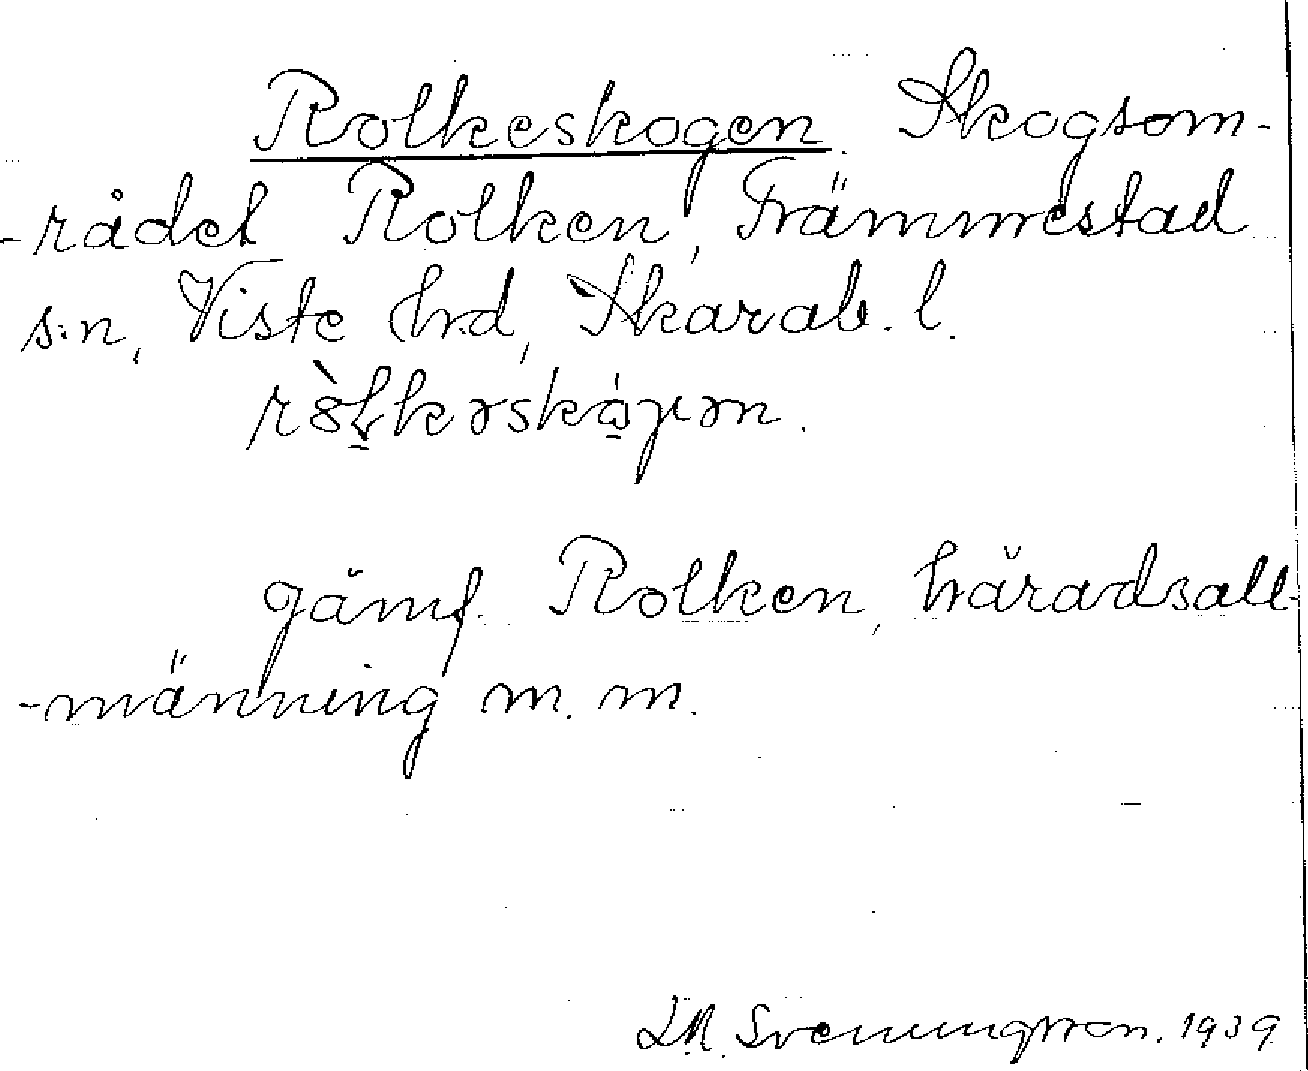 Rolkeskogen. Skogsom-
-rådet Rolken, Främmestad
s:n, Viste hrd, Skarab. l.
gämf. Rolken, häradsall-
-männing m. m.
Svenungsson. 1939